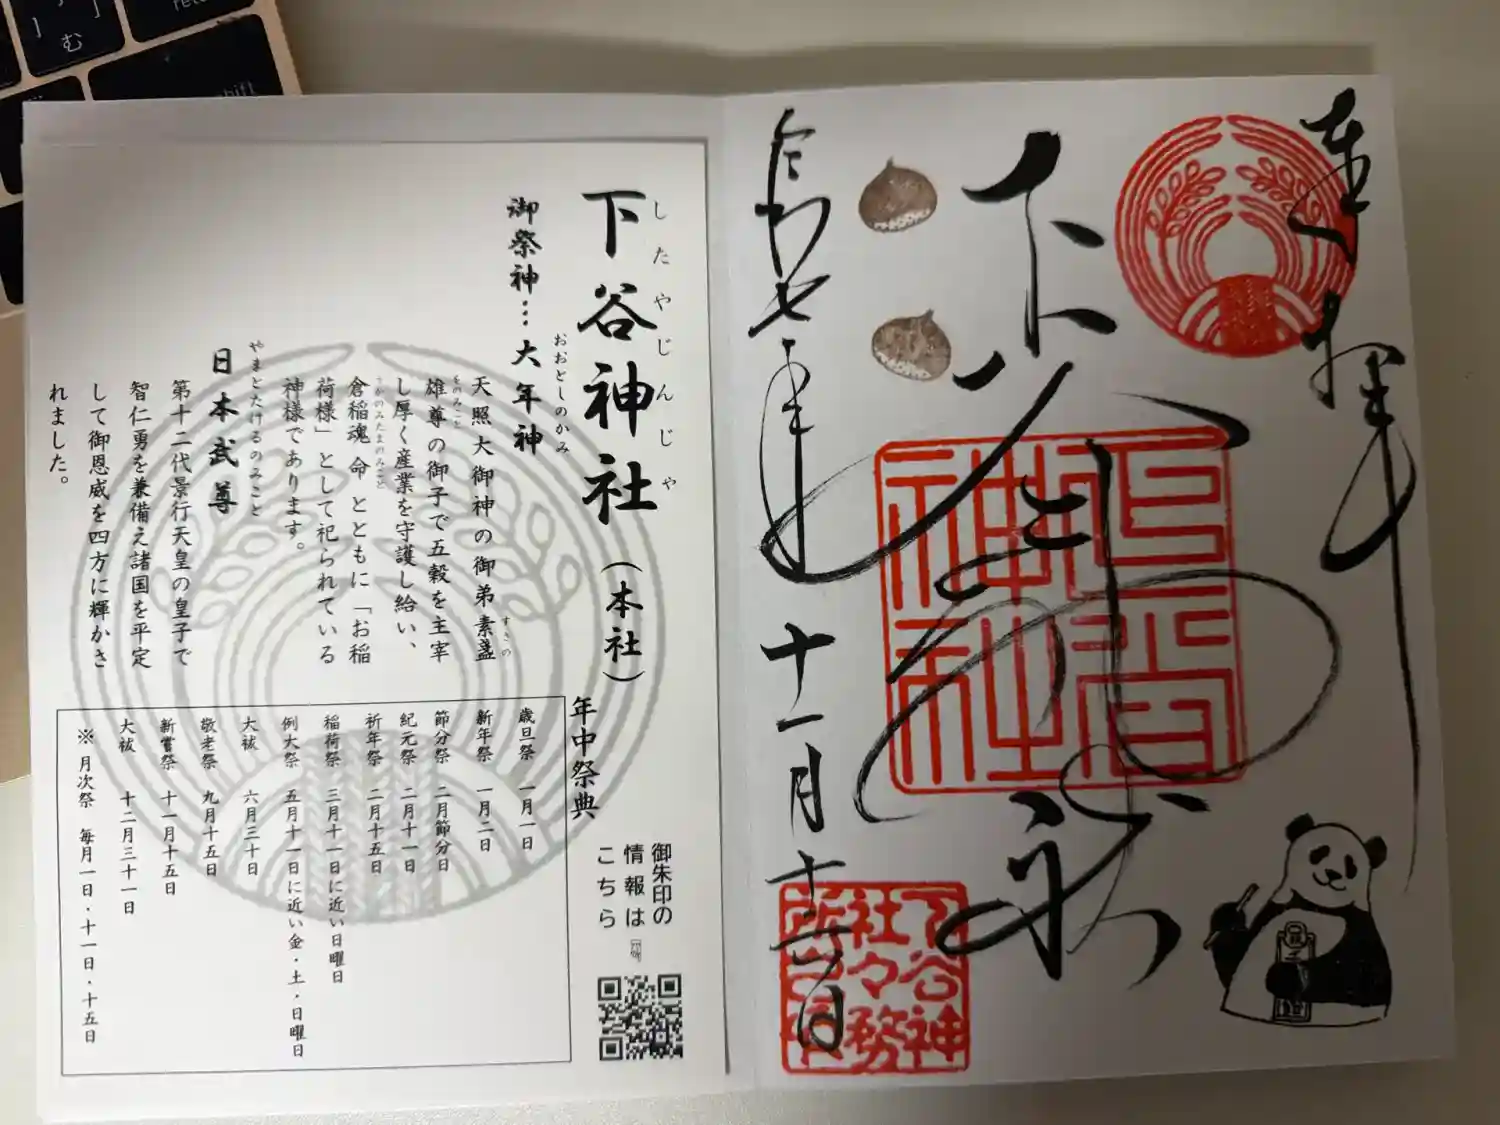 奉拝
下谷神社
令和七年十一月十六日
下谷神
社々務
所之印
下谷神社(本社)
したやじんじゃ
御祭神…大年神
おおとしのかみ
天照大御神の御弟素盞
すさの
雄尊の御子で五穀を主宰
をのみこと
し厚く産業を守護し給い、
倉稲魂命とともに「お稲
うかのみたまのみこと
荷様」として祀られている
神様であります。
日本武尊
やまとたけるのみこと
第十二代景行天皇の皇子で
智仁勇を兼備え諸国を平定
して御恩威を四方に輝かさ
れました。
年中祭典
歳旦祭 一月一日
新年祭 一月二日
節分祭 二月節分日
紀元祭 二月十一日
祈年祭 二月十五日
稲荷祭 三月十一日に近い日曜日
例大祭 五月十一日に近い金・土・日曜日
大祓 六月三十日
敬老祭 九月十五日
新嘗祭 十一月十五日
大祓 十二月三十一日
※ 月次祭 毎月一日・十一日・十五日
御朱印の
情報は
こちら
む
shift